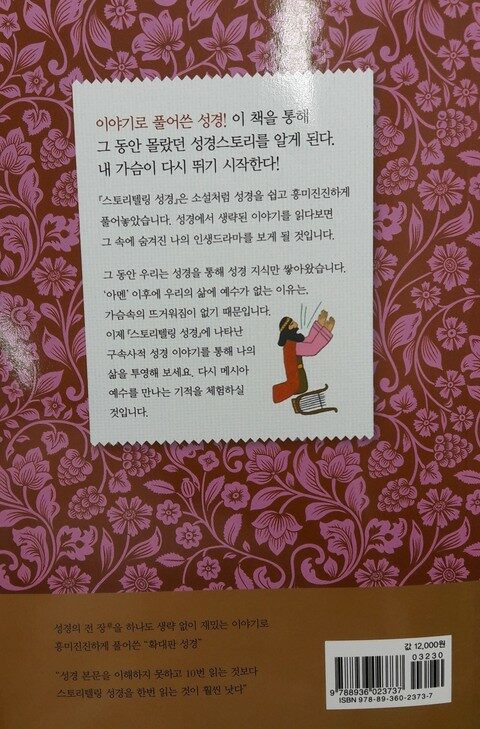 이야기로 풀어쓴 성경! 이 책을 통해
그 동안 몰랐던 성경스토리를 알게 된다.
내 가슴이 다시 뛰기 시작한다!
『스토리텔링 성경』은 소설처럼 성경을 쉽고 흥미진진하게
풀어놓았습니다. 성경에서 생략된 이야기를 읽다보면
그 속에 숨겨진 나의 인생드라마를 보게 될 것입니다.
그 동안 우리는 성경을 통해 성경 지식만 쌓아왔습니다.
‘아멘’ 이후에 우리의 삶에 예수가 없는 이유는,
가슴속의 뜨거워짐이 없기 때문입니다.
이제 『스토리텔링 성경』에 나타난
구속사적 성경 이야기를 통해 나의
삶을 투영해 보세요. 다시 메시아
예수를 만나는 기적을 체험하실
것입니다.
성경의 전 장章을 하나도 생략 없이 재밌는 이야기로
흥미진진하게 풀어쓴 “확대판 성경”
“성경 본문을 이해하지 못하고 10번 읽는 것보다
스토리텔링 성경을 한번 읽는 것이 훨씬 낫다”
값 12,000원
03230
9 788936 023737
ISBN 978-89-360-2373-7